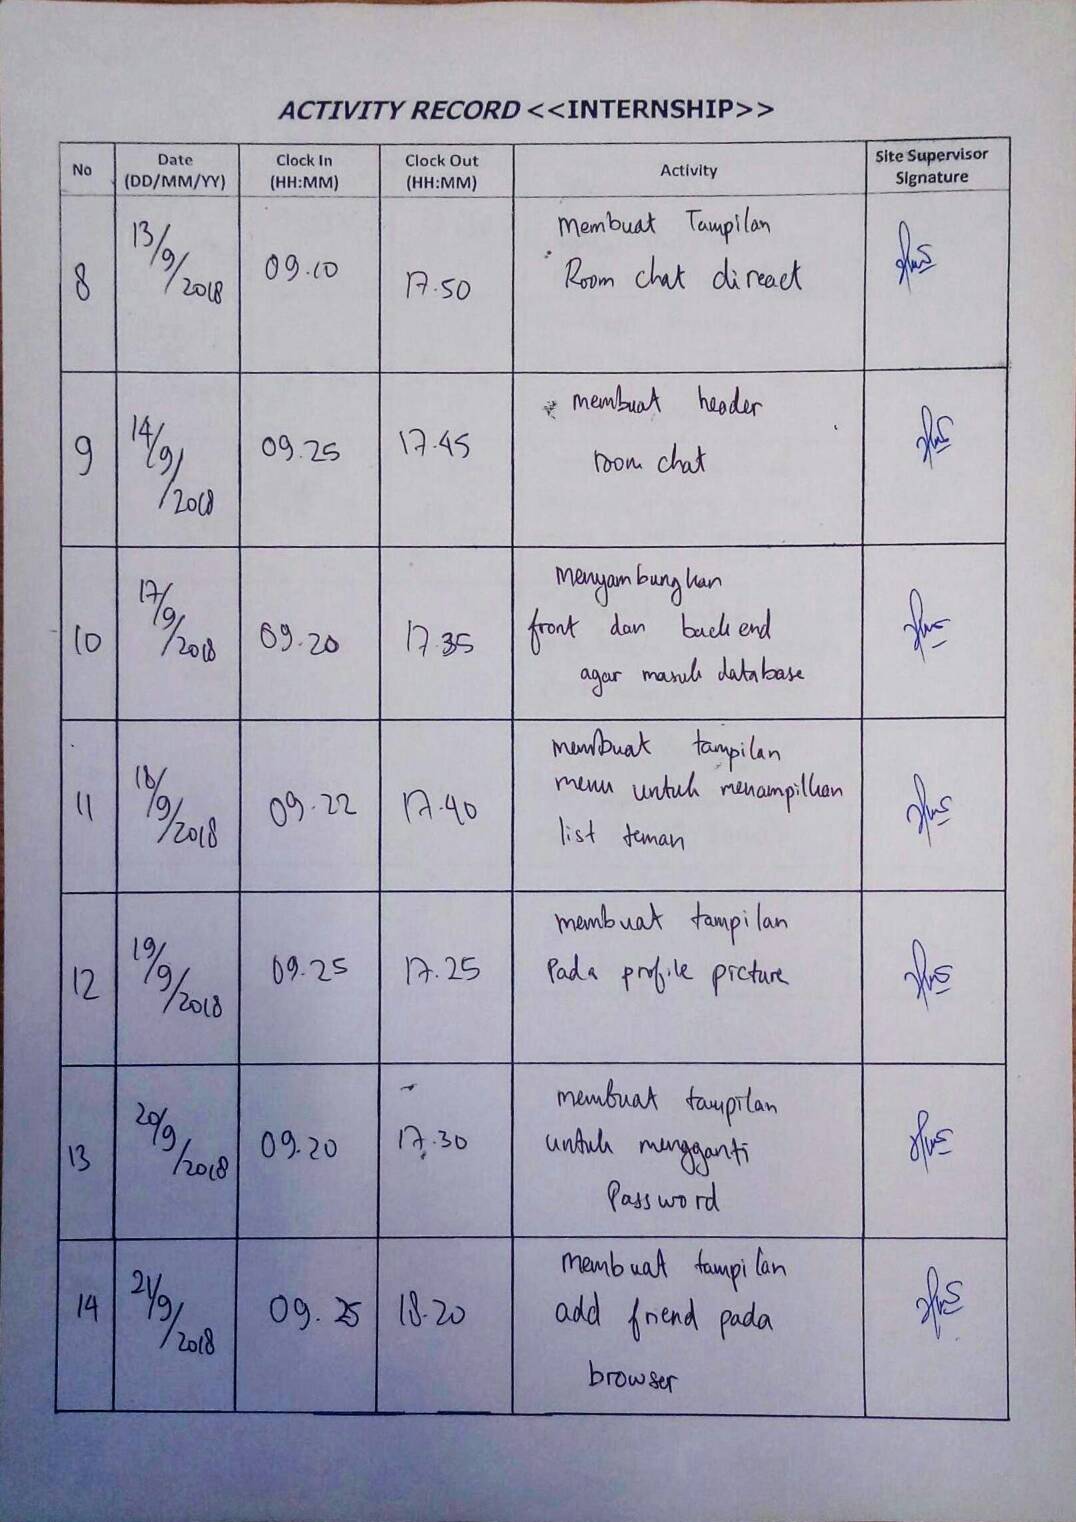 ACTIVITY RECORD <<INTERNSHIP>>
No
Date
(DD/MM/YY)
Clock In
(HH:MM)
Clock Out
(HH:MM)
Activity
Site Supervisor
Signature
8
13/9/2018
09.10
17.50
Membuat Tampilan
Room chat direact
9
14/9/2018
09.25
17.45
membuat header
room chat
10
17/9/2018
09.20
17.35
Menyambungkan
front dan back end
agar masuk database
11
18/9/2018
09.22
17.40
membuat tampilan
menu untuk menampilkan
list teman
12
19/9/2018
09.25
17.25
membuat tampilan
Pada profile picture
13
20/9/2018
09.20
17.30
membuat tampilan
untuk mengganti
Password
14
21/9/2018
09.25
18.20
membuat tampilan
add friend pada
browser